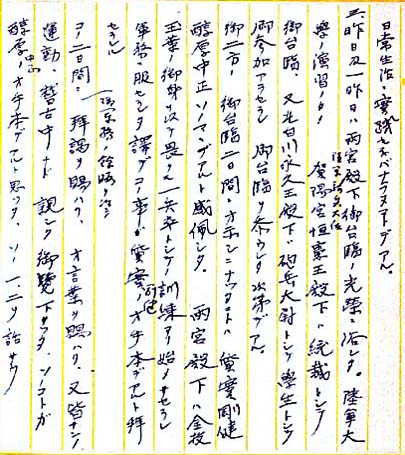 日常生活ニ実践セネバナラヌコトデアル。
三、昨日及一昨日ハ両宮殿下御台臨ノ光栄ニ浴シタ。陸軍大
学ノ演習ノ日
賀陽宮恒憲王殿下ハ統裁トシテ
御台臨、又北白川永久王殿下ハ砲兵大尉トシテ学生トシテ
御参加アラセラレ 御台臨ヲ忝ウシタ次第デアル
御二方ノ御台臨二日間ニオ示シニナッタコトハ質実剛健
醇厚中正ソノマヽデアルト感佩シタ。両宮殿下ハ金枝
玉葉ノ御身ヲ以テ畏クモ一兵卒トシテノ訓練ヨリ始メサセラレ
軍務ニ服セラレタ訳デコノ事ガ質実剛健ノオ手本デアルト拝
セラル
コノ二日間ニ拝謁ヲ賜ハリ、オ言葉ヲ賜ハリ、又皆ナノ
運動、稽古中ナド親シク御覧下サッタ、ソノコトガ
醇厚中正ノオ手本デアルト思ツタ、ソノ一、二ヲ話サウ